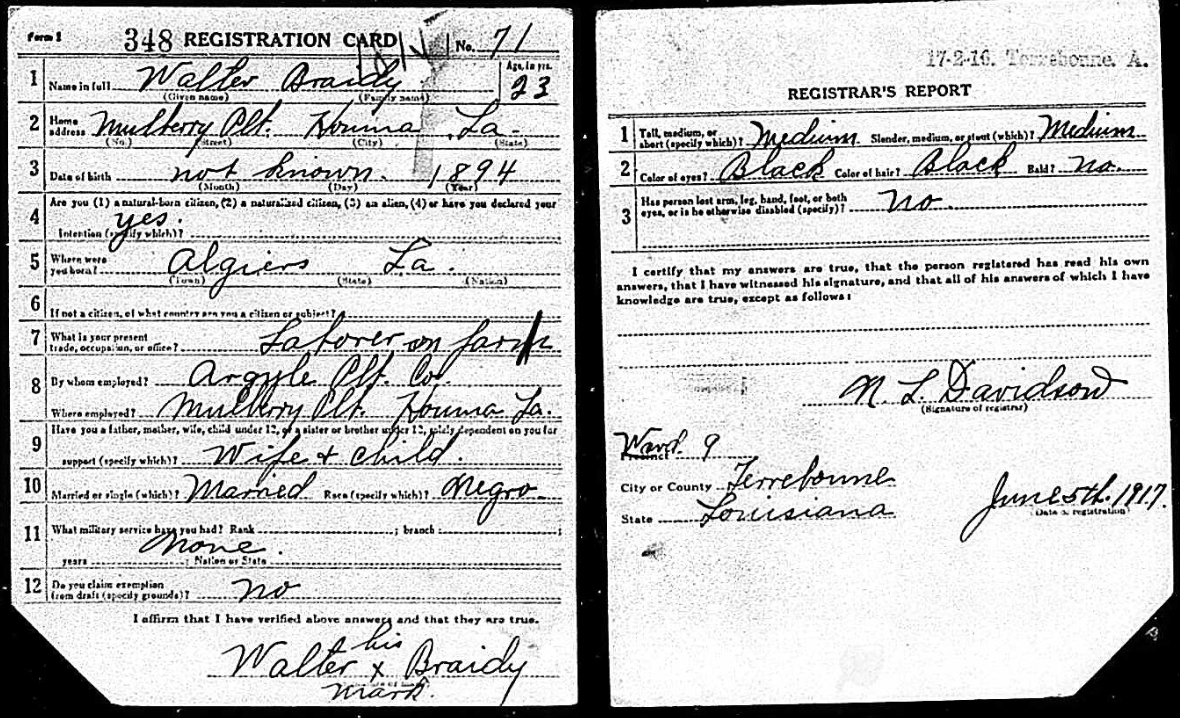 Form 1 348 REGISTRATION CARD No. 71
1 Name in full Walter Braidy Age, in yrs. 23
(Given name) (Family name)
2 Home address Mulberry Plt. Houma La.
(No.) (Street) (City) (State)
3 Date of birth not known. 1894
(Month) (Day) (Year)
4 Are you (1) a natural-born citizen, (2) a naturalized citizen, (3) an alien, (4) or have you declared your
intention (specify which)? yes.
5 Where were you born? Algiers La.
(Town) (State) (Nation)
6 If not a citizen, of what country are you a citizen or subject?
7 What is your present trade, occupation, or office? Laborer on farm
8 By whom employed? Argyle Plt. Co.
Where employed? Mulberry Plt. Houma La.
9 Have you a father, mother, wife, child under 12, or a sister or brother under 12, solely dependent on you for
support (specify which)? Wife + child.
10 Married or single (which)? Married Race (specify which)? Negro
11 What military service have you had? Rank ; branch ;
years None. ; Nation or State
12 Do you claim exemption from draft (specify grounds)? no
I affirm that I have verified above answers and that they are true.
his
Walter x Braidy
mark.
17-2-16. Terrebonne. A.
REGISTRAR'S REPORT
1 Tall, medium, or short (specify which)? Medium Slender, medium, or stout (which)? Medium
2 Color of eyes? Black Color of hair? Black Bald? no.
3 Has person lost arm, leg, hand, foot, or both eyes, or is he otherwise disabled (specify)? no.
I certify that my answers are true, that the person registered has read his own
answers, that I have witnessed his signature, and that all of his answers of which I have
knowledge are true, except as follows:
N. L. Davidson
(Signature of registrar)
Ward 9
Precinct
City or County Terrebonne
State Louisiana June 5th. 1917.
(Date of registration)